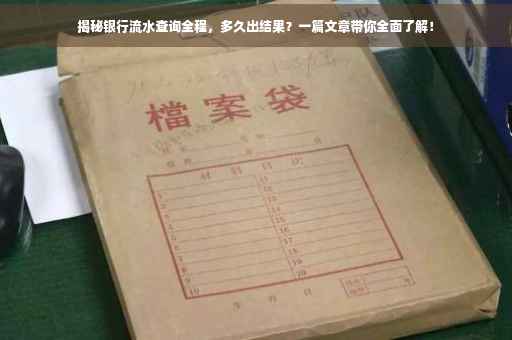 揭秘银行流水查询全程，多久出结果？一篇文章带你全面了解！
檔案袋
材料目次
1 11
2 12
3 13
4 14
5 15
6 16
7 17
8 18
9 19
10 20
年 月 日